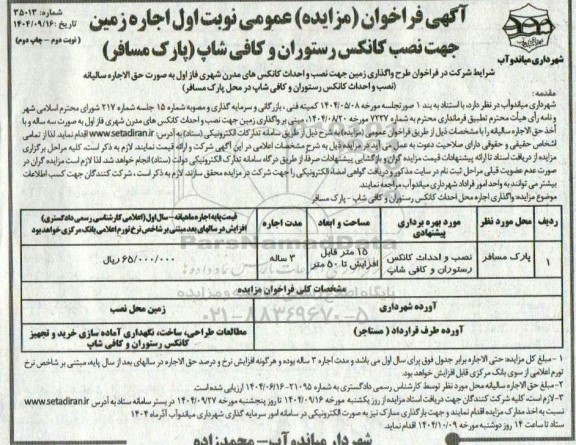 آگهی فراخوان (مزایده) عمومی نوبت اول اجاره زمین
جهت نصب کانکس رستوران و کافی شاپ (پارک مسافر)
شماره: ۳۵۰۱۳
تاریخ: ۱۴۰۴/۰۹/۱۶
(نوبت دوم - چاپ دوم)
شهرداری میاندوآب
شرایط شرکت در فراخوان طرح واگذاری زمین جهت نصب و احداث کانکس های مدرن شهری فاز اول به صورت حق الاجاره سالیانه
(نصب و احداث کانکس رستوران و کافی شاپ در محل پارک مسافر)
مقدمه:
شهرداری میاندوآب در نظر دارد، با استناد به بند ۱ صورتجلسه مورخه ۱۴۰۴/۰۵/۰۸ کمیته فنی، بازرگانی و سرمایه گذاری و مصوبه شماره ۱۵ جلسه شماره ۲۱۷ شورای محترم اسلامی شهر
و نامه رأی هیأت محترم تطبیق فرمانداری محترم به شماره ۷۲۳۷ مورخه ۱۴۰۴/۰۸/۲۰ مبنی بر واگذاری زمین جهت نصب و احداث کانکس های مدرن شهری فاز اول به صورت سه ساله و با
أخذ حق الاجاره سالیانه را با مشخصات ذیل از طریق فراخوان عمومی (مزایده) به شرح ذیل از طریق سامانه تدارکات الکترونیکی (ستاد) به آدرس: www.setadiran.ir اقدام نماید. لذا از تمامی
اشخاص حقیقی و حقوقی دارای صلاحیت دعوت به عمل می آید در مزایده ذیل به شرح مشخصات اعلامی در این آگهی شرکت و ارائه قیمت نمایند. لازم به ذکر است، کلیه مراحل برگزاری
مزایده از دریافت اسناد تا ارائه پیشنهادات قیمت مزایده گران و بازگشایی پیشنهادات صرفا از طریق درگاه سامانه تدارکات الکترونیکی دولت (ستاد) انجام خواهد شد. لذا لازم است مزایده گران در
صورت عدم عضویت قبلی مراحل ثبت نام در سایت مذکور و دریافت گواهی امضاء الکترونیکی را جهت شرکت در مزایده محقق سازند. لازم به ذکر است، شرکت کنندگان جهت کسب اطلاعات
بیشتر می توانند به واحد امور قراداد شهرداری میاندوآب مراجعه نمایند.
موضوع آگهی: مزایده اجاره محل احداث کانکس رستوران و کافی شاپ - پارک مسافر
ردیف | محل مورد نظر | مورد بهره برداری پیشنهادی | مساحت و ابعاد | مدت اجاره | قیمت پایه اجاره ماهیانه - سال اول (اعلامی کارشناسی رسمی دادگستری) افزایش در سالهای بعد مبتنی بر شاخص نرخ تورم اعلامی بانک مرکزی خواهد بود
۱ | پارک مسافر | نصب و احداث کانکس رستوران و کافی شاپ | ۱۵ متر قابل افزایش تا ۵۰ متر | ۳ ساله | ۶۵/۰۰۰/۰۰۰ ریال
مشخصات کلی فراخوان مزایده
آورده شهرداری | زمین محل نصب
آورده طرف قرارداد (مستاجر) | مطالعات طراحی، ساخت، نگهداری آماده سازی خرید و تجهیز کانکس رستوران و کافی شاپ
۱ - مبلغ کل مزایده: حتی الاجاره برابر جدول فوق برای سال اول می باشد و مدت اجاره ۳ ساله بوده و هرگونه افزایش نرخ و درصد حق الاجاره در سالهای بعد از سال پایه، مبتنی بر شاخص نرخ
تورم اعلامی از سوی بانک مرکزی قابل افزایش خواهد بود.
۲- مبلغ حق الاجاره سالیانه محل مورد نظر توسط کارشناس رسمی دادگستری به شماره ۲۱۰۹۵-۱۴۰۴/۰۶/۱۶ ارزیابی شده است.
۳- لازم است، کلیه شرکت کنندگان جهت دریافت اسناد مزایده از روز یکشنبه مورخه ۱۴۰۴/۰۹/۱۶ تا روز پنجشنبه مورخه ۱۴۰۴/۰۹/۲۷ در بستر سامانه ستاد به آدرس www.setadiran.ir
نسبت به اخذ مدارک مزایده اقدام نمایند و جهت بارگذاری مدارک نیز به صورت الکترونیکی در سامانه امور سرمایه گذاری شهرداری میاندوآب آذرماه ۱۴۰۲
ستاد تا ساعت ۱۴ روز دوشنبه مورخه ۱۴۰۴/۱۰/۰۹ اقدام نمایند.
شهردار میاندوآب - محمدزاده
ParsNamadData
۰۲۱-۸۸۳۴۹۶۷۰-۵